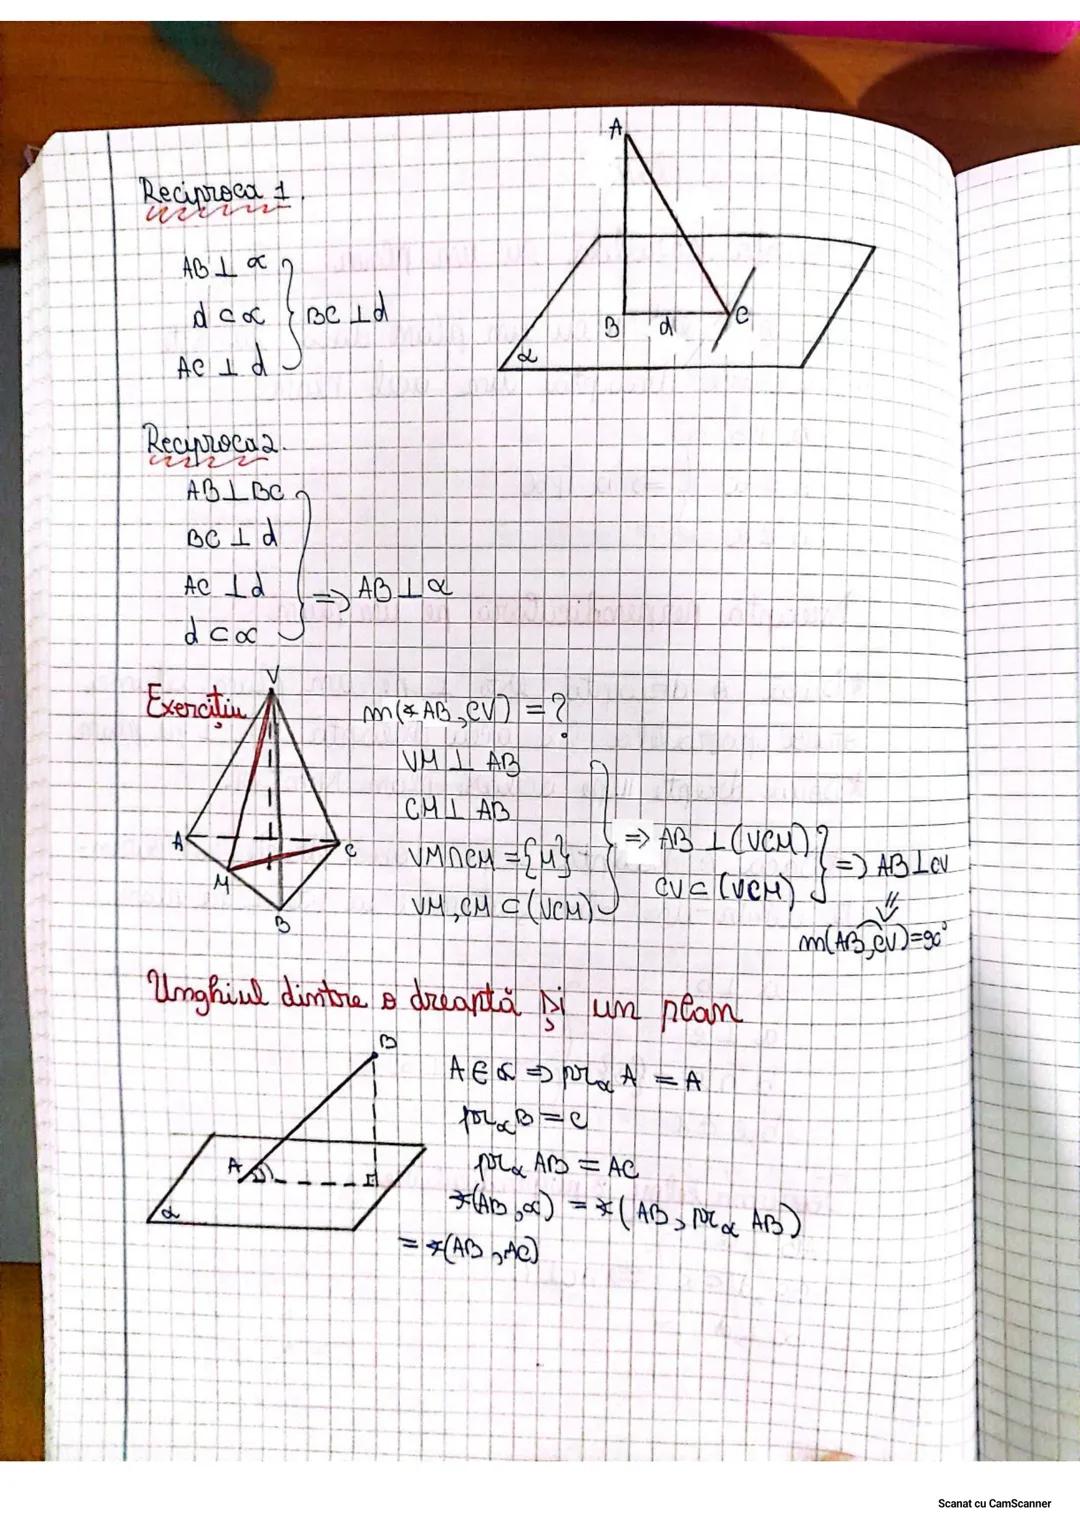 A
Reciproca 1.
AB ⊥ α
d ⊂ α } BC ⊥ d
AC ⊥ d
B d C
α
Reciproca 2.
AB ⊥ BC
BC ⊥ d
AC ⊥ d } => AB ⊥ α
d ⊂ α
V
Exercițiu m(∢ AB, CV) = ?
VM ⊥ AB
CM ⊥ AB
VM ∩ CM = {M} } => AB ⊥ (VCM)
VM, CM ⊂ (VCM) CV ⊂ (VCM) } => AB ⊥ CV
A M B C
m(AB, CV) = 90°
Unghiul dintre o dreaptă și un plan
B
A ∈ α => pr_α A = A
pr_α B = C
A
pr_α AB = AC
α
∢(AB, α) = ∢(AB, pr_α AB)
= ∢(AB, AC)
Scanat cu CamScanner